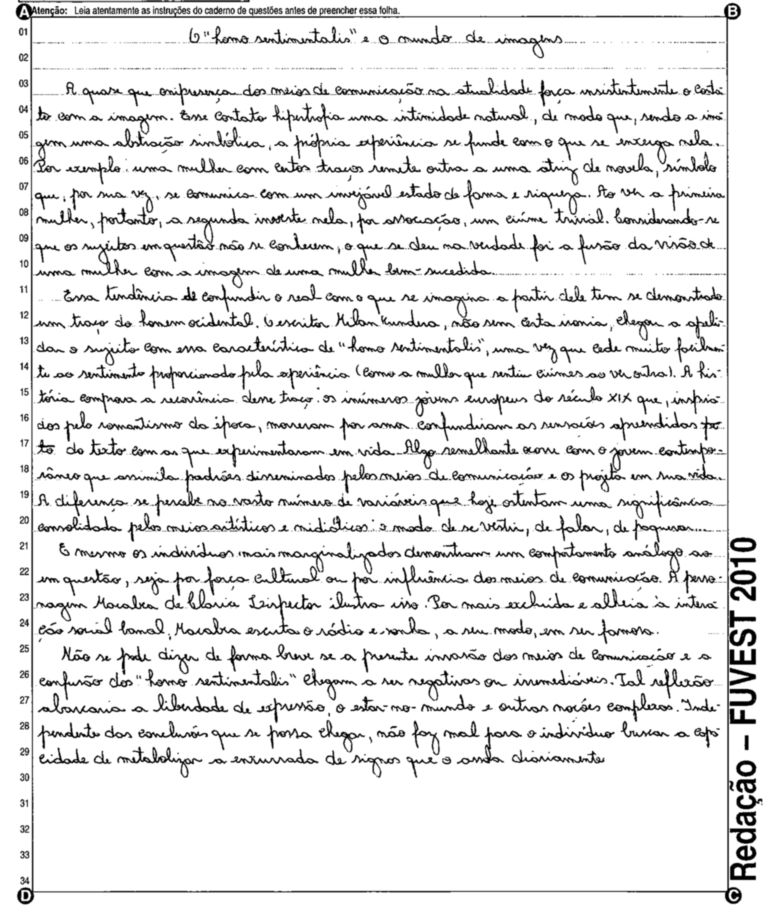 A Atenção: Leia atentamente as instruções do caderno de questões antes de preencher essa folha. B
01 O "homo sentimentalis" e o mundo de imagens
02
03 A quase que onipresença dos meios de comunicação na atualidade força insistentemente o conta
04 to com a imagem. Esse contato hipertrofia uma intimidade natural, de modo que, sendo a ima
05 gem uma abstração simbólica, a própria experiência se funde com o que se enxerga nela.
06 Por exemplo: uma mulher com certos traços remete outra a uma atriz de novela, símbolo
07 que, por sua vez, se comunica com um invejável estado de fama e riqueza. Ao ver a primeira
08 mulher, portanto, a segunda investe nela, por associação, um ciúme trivial. Considerando-se
09 que os sujeitos em questão não se conhecem, o que se deu na verdade foi a fusão da visão de
10 uma mulher com a imagem de uma mulher bem-sucedida.
11 Essa tendência de confundir o real com o que se imagina a partir dele tem se demonstrado
12 um traço do homem ocidental. O escritor Milan Kundera, não sem certa ironia, chegou a apeli
13 dar o sujeito com essa característica de "homo sentimentalis", uma vez que cede muito facilmen
14 te ao sentimento proporcionado pela experiência (como a mulher que sentiu ciúmes ao ver outra). A his
15 tória comprova a recorrência desse traço: os inúmeros jovens europeus do século XIX que, inspira
16 dos pelo romantismo da época, morreram por amor confundiram as sensações apreendidas
17 do texto com as que experimentaram em vida. Algo semelhante ocorre com o jovem contempo-
18 râneo que assimila padrões disseminados pelos meios de comunicação e os projeta em sua vida.
19 A diferença se percebe no vasto número de variáveis que hoje ostentam uma significância
20 consolidada pelos meios artísticos e midiáticos: o modo de se vestir, de falar, de paquerar...
21 E mesmo os indivíduos mais marginalizados demonstram um comportamento análogo ao
22 em questão, seja por força cultural ou por influência dos meios de comunicação. A perso-
23 nagem Macabéa de Clarice Lispector ilustra isso. Por mais excluída e alheia à intera
24 ção social banal, Macabéa escuta o rádio e sonha, a seu modo, em ser famosa.
25 Não se pode dizer de forma breve se a presente invasão dos meios de comunicação e a
26 confusão dos "homo sentimentalis" chegam a ser negativas ou irremediáveis. Tal reflexão
27 abarcaria a liberdade de expressão, o estar-no-mundo e outras noções complexas. Inde-
28 pendente das conclusões que se possa chegar, não faz mal para o indivíduo buscar a capa
29 cidade de metabolizar a enxurrada de signos que o assola diariamente
30
31
32
33
34
D C
Redação – FUVEST 2010